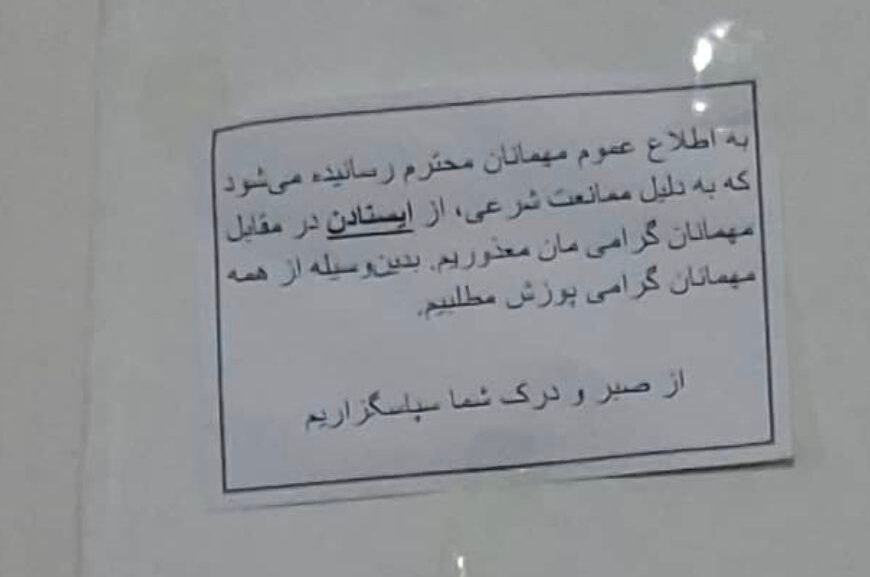 به اطلاع عموم مهمانان محترم رسانیده می‌شود
که به دلیل ممانعت شرعی، از ایستادن در مقابل
مهمانان گرامی مان معذوریم. بدین‌وسیله از همه
مهمانان گرامی پوزش مطلبیم.
از صبر و درک شما سپاسگزاریم